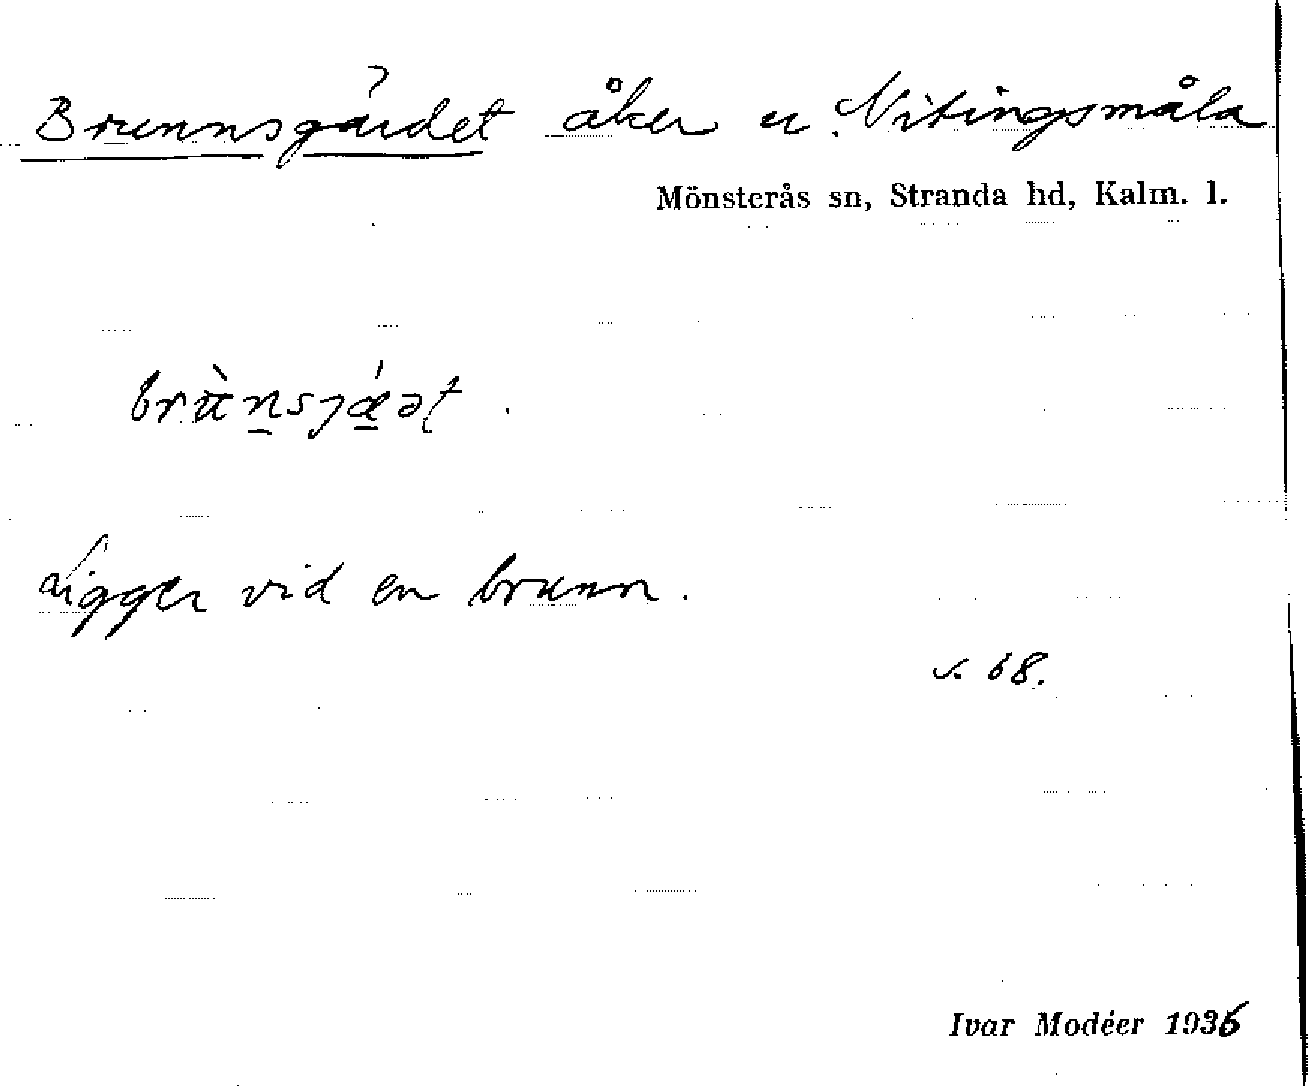 Brunnsgärdet åker u. Nitingsmåla
Mönsterås sn, Stranda hd, Kalm. l.
Ligger vid en brunn.
s. 68.
Ivar Modéer 1936